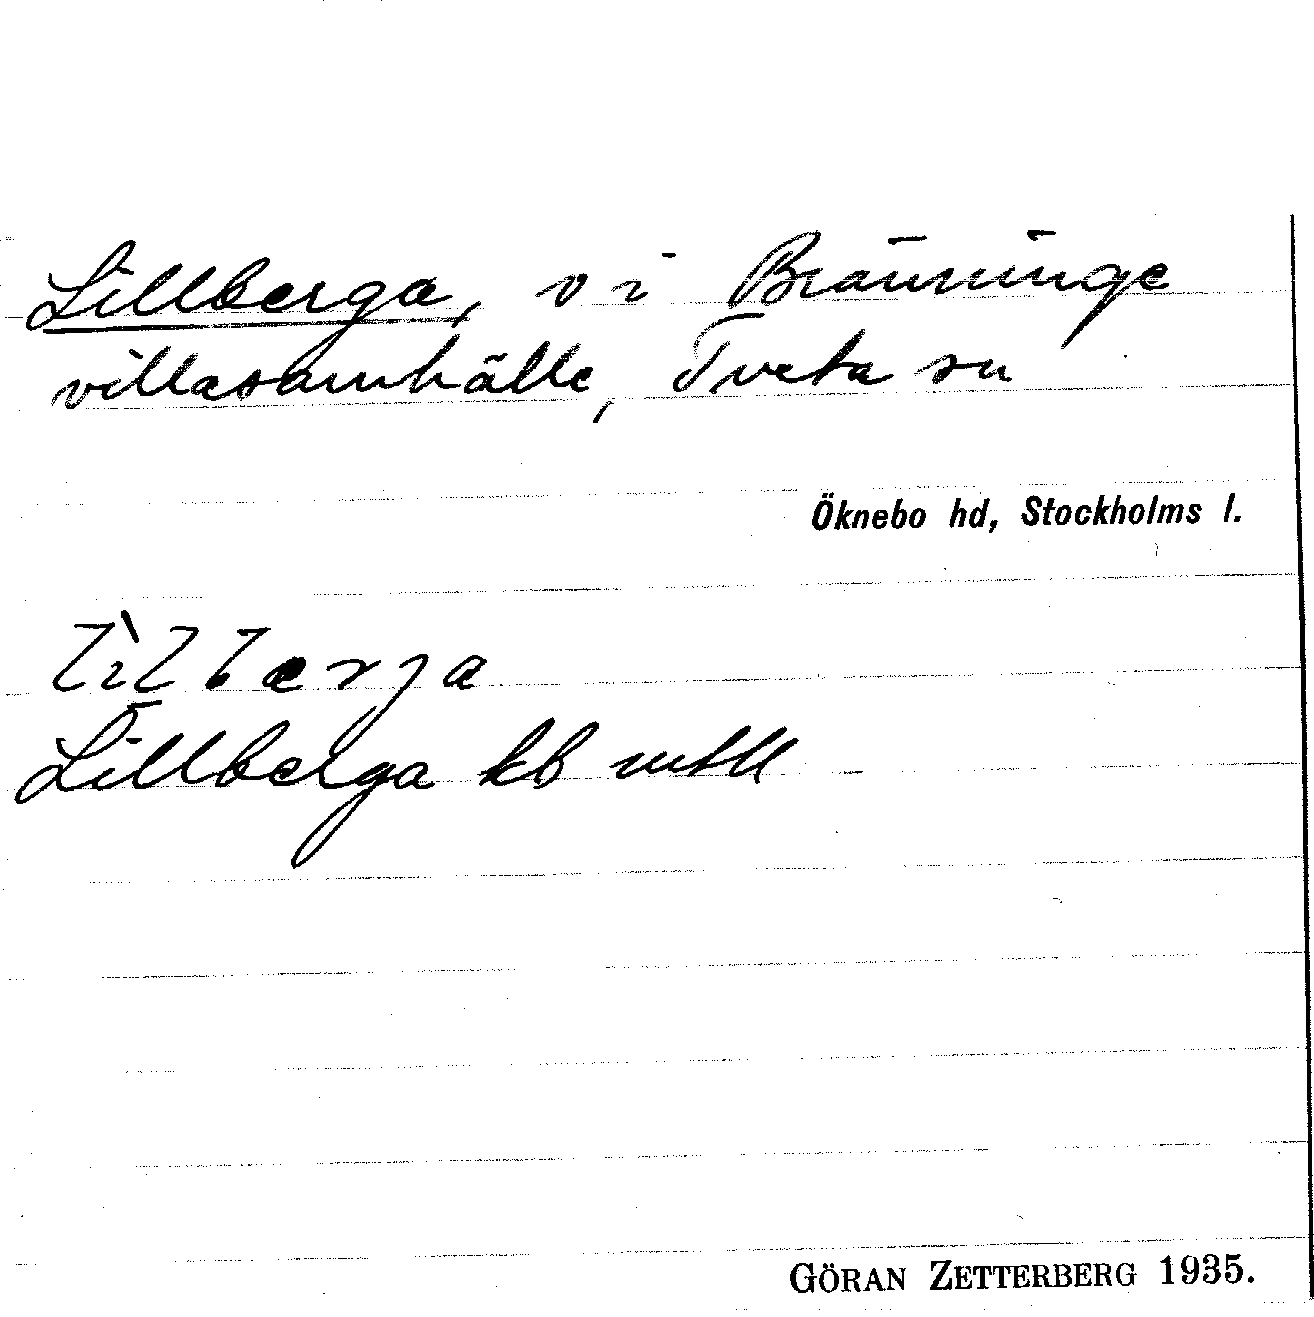 Lillberga, v i Bränninge
villasamhälle, Tveta sn
Öknebo hd, Stockholms l.
Lillberga kb mtll
GÖRAN ZETTERBERG 1935.